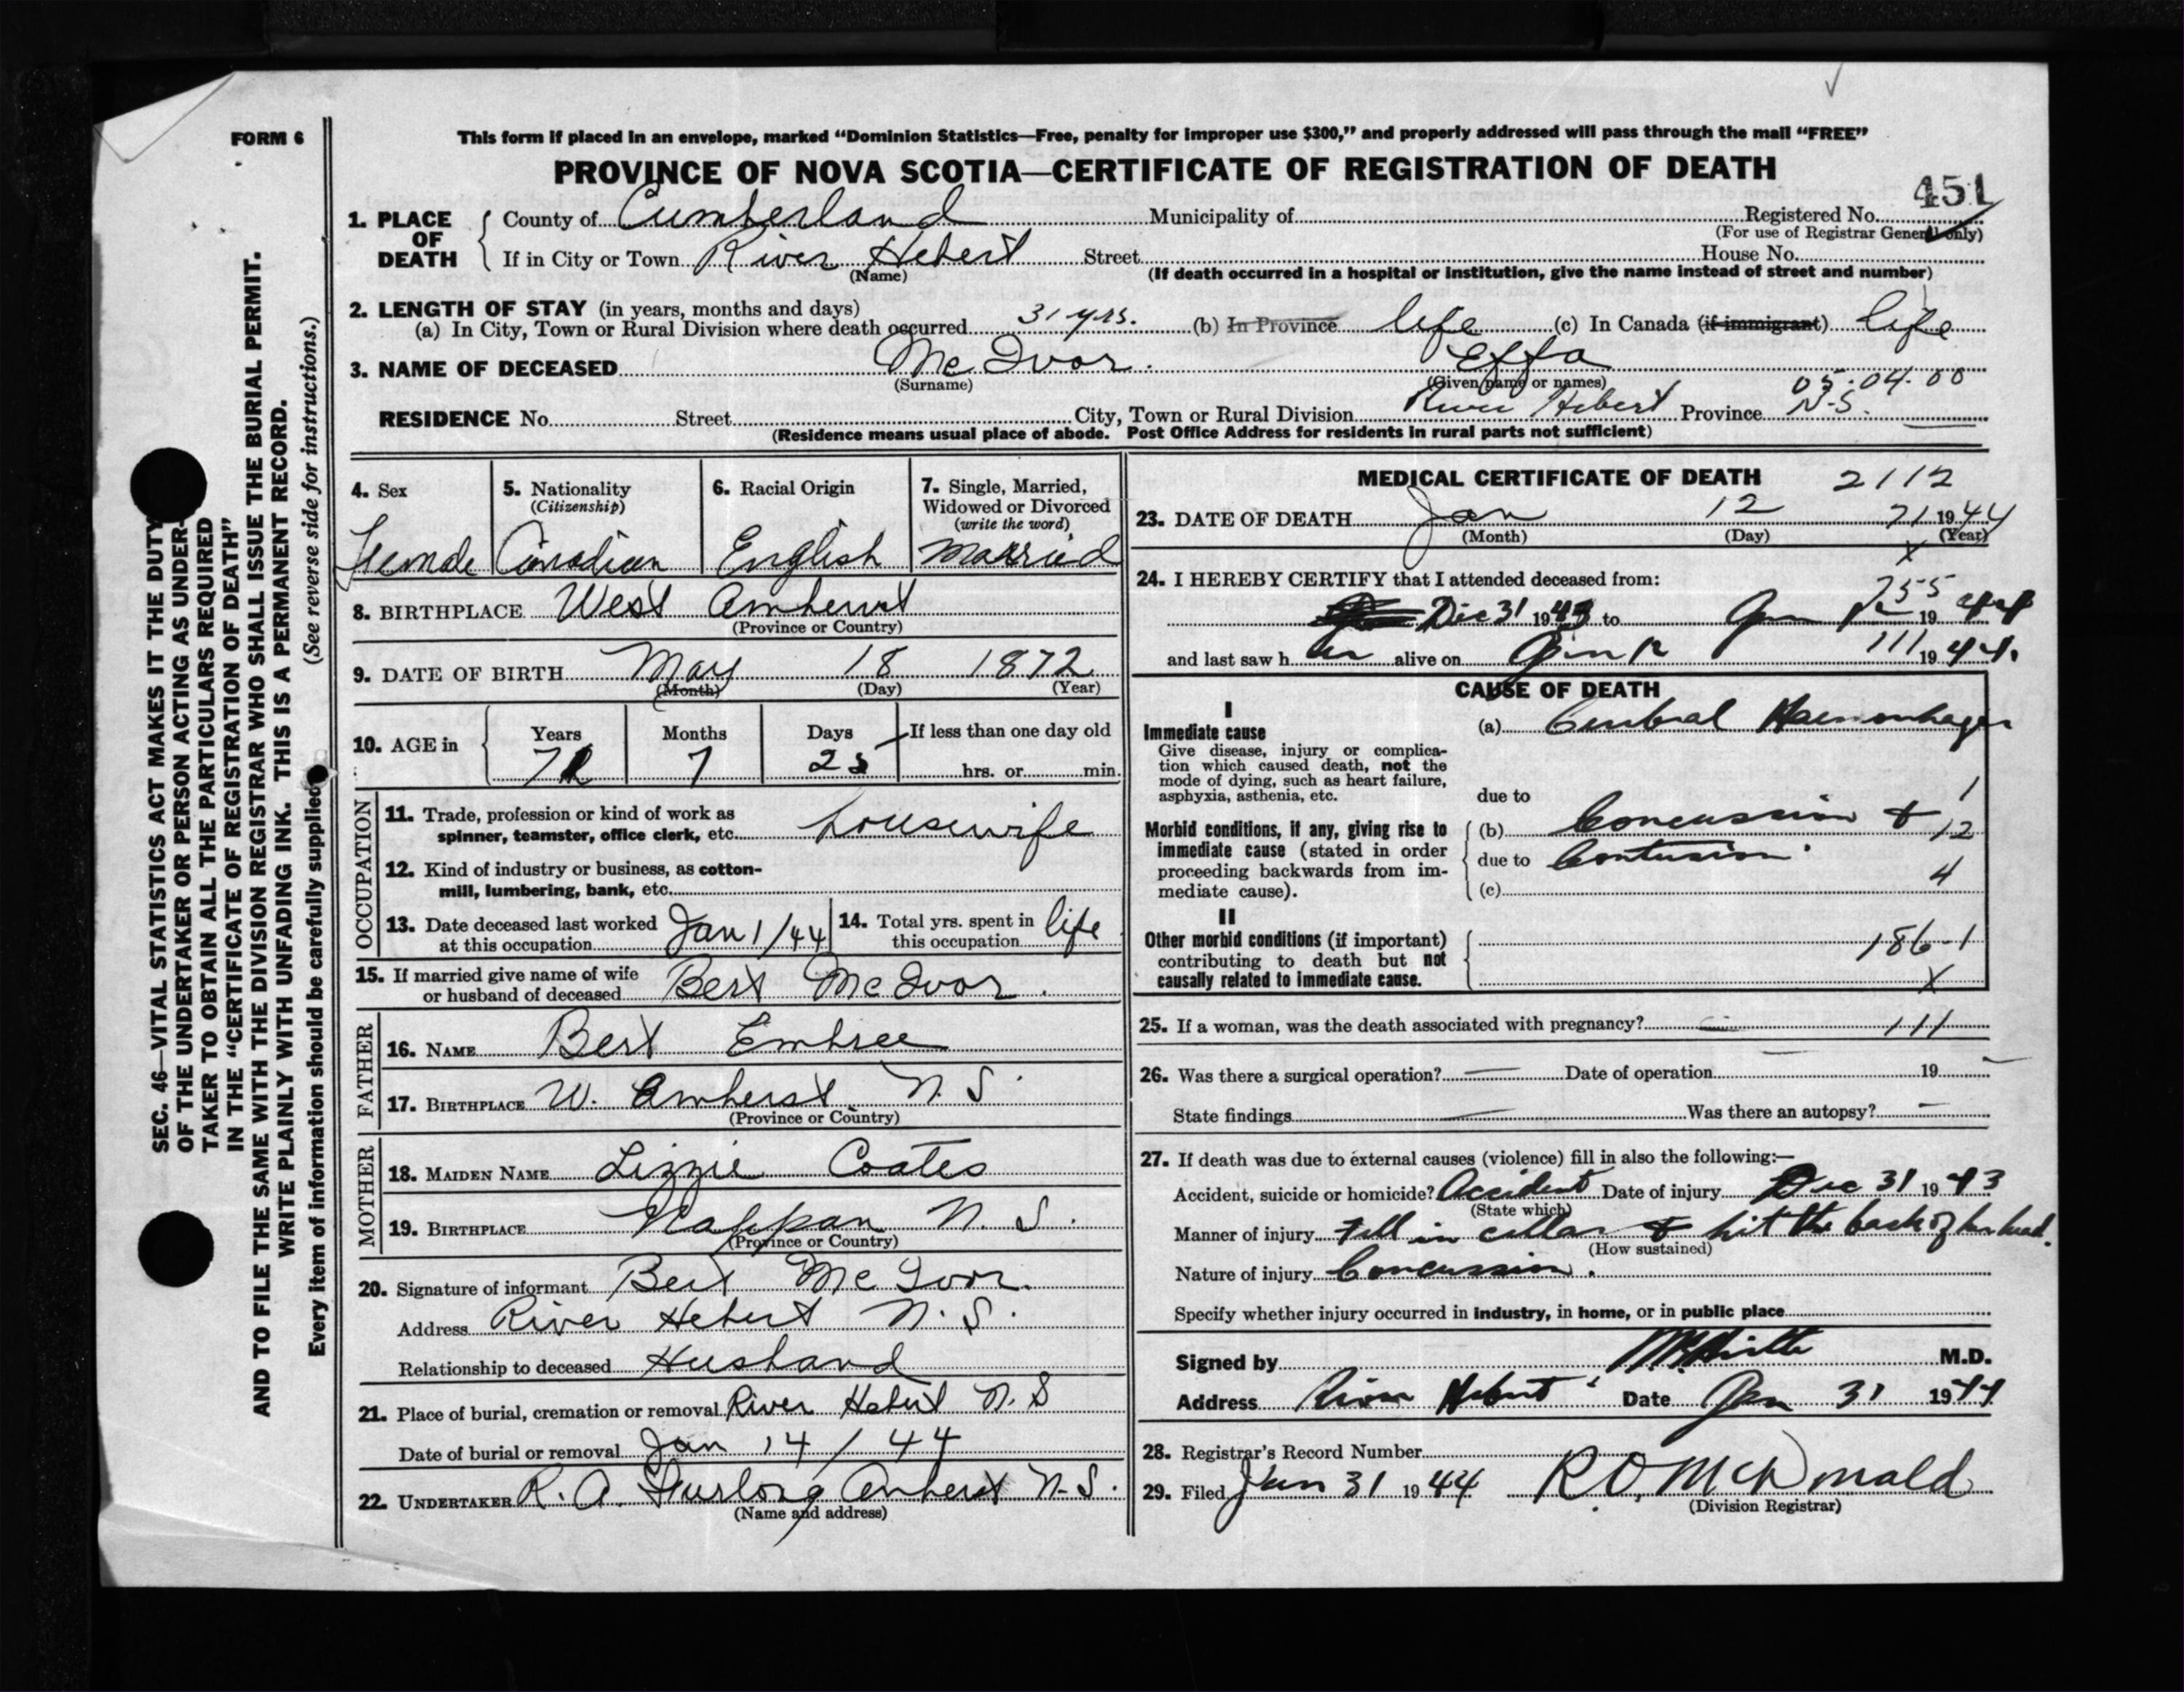 FORM 6
This form if placed in an envelope, marked “Dominion Statistics—Free, penalty for improper use $300,” and properly addressed will pass through the mail “FREE”
PROVINCE OF NOVA SCOTIA—CERTIFICATE OF REGISTRATION OF DEATH
451
1. PLACE OF DEATH { County of Cumberland Municipality of Registered No.
(For use of Registrar General only)
If in City or Town River Hebert Street House No.
(Name) (If death occurred in a hospital or institution, give the name instead of street and number)
2. LENGTH OF STAY (in years, months and days)
(a) In City, Town or Rural Division where death occurred 31 yrs. (b) In Province life (c) In Canada (if immigrant) life
3. NAME OF DECEASED Mc Ivor. Effa
(Surname) (Given name or names) 05.04.00
RESIDENCE No. Street City, Town or Rural Division River Hebert Province N.S.
(Residence means usual place of abode. Post Office Address for residents in rural parts not sufficient)
SEC. 46—VITAL STATISTICS ACT MAKES IT THE DUTY
OF THE UNDERTAKER OR PERSON ACTING AS UNDER-
TAKER TO OBTAIN ALL THE PARTICULARS REQUIRED
IN THE “CERTIFICATE OF REGISTRATION OF DEATH”
AND TO FILE THE SAME WITH THE DIVISION REGISTRAR WHO SHALL ISSUE THE BURIAL PERMIT.
WRITE PLAINLY WITH UNFADING INK. THIS IS A PERMANENT RECORD.
Every item of information should be carefully supplied (See reverse side for instructions.)
4. Sex 5. Nationality 6. Racial Origin 7. Single, Married,
(Citizenship) Widowed or Divorced
(write the word)
Female Canadian English Married
8. BIRTHPLACE West Amherst
(Province or Country)
9. DATE OF BIRTH May 18 1872
(Month) (Day) (Year)
10. AGE in { Years Months Days If less than one day old
7 25 hrs. or min.
OCCUPATION
11. Trade, profession or kind of work as
spinner, teamster, office clerk, etc. housewife
12. Kind of industry or business, as cotton-
mill, lumbering, bank, etc.
13. Date deceased last worked
at this occupation Jan 1/44
14. Total yrs. spent in
this occupation life
15. If married give name of wife
or husband of deceased Bert Mc Ivor.
FATHER
16. NAME Bert Embree
17. BIRTHPLACE W. Amherst N. S.
(Province or Country)
MOTHER
18. MAIDEN NAME Lizzie Coates
19. BIRTHPLACE Nappan N. S.
(Province or Country)
20. Signature of informant Bert Mc Ivor.
Address River Hebert N. S.
Relationship to deceased Husband
21. Place of burial, cremation or removal River Hebert N. S
Date of burial or removal Jan 14/44
22. UNDERTAKER R. A. Furlong Amherst N-S.
(Name and address)
MEDICAL CERTIFICATE OF DEATH 2112
23. DATE OF DEATH Jan 12 71 1944
(Month) (Day) (Year)
X
24. I HEREBY CERTIFY that I attended deceased from:
755
Dec 31 1943 to Jan 12 19 44
and last saw her alive on Jan 12 111 19 44.
CAUSE OF DEATH
I
Immediate cause (a) Cerebral Haemorhage
Give disease, injury or complica-
tion which caused death, not the
mode of dying, such as heart failure,
asphyxia, asthenia, etc. due to 1
Morbid conditions, if any, giving rise to (b) Concussion & 12
immediate cause (stated in order due to Contusion.
proceeding backwards from im- 4
mediate cause). (c)
II
Other morbid conditions (if important) 186-1
contributing to death but not
causally related to immediate cause. X
25. If a woman, was the death associated with pregnancy? — 111
26. Was there a surgical operation? — Date of operation 19 —
State findings — Was there an autopsy? —
27. If death was due to external causes (violence) fill in also the following:—
Accident, suicide or homicide? Accident Date of injury Dec 31 1943
(State which)
Manner of injury Fell in cellar & hit the back of her head.
(How sustained)
Nature of injury Concussion.
Specify whether injury occurred in industry, in home, or in public place
Signed by M.D.
Address River Hebert Date Jan 31 1944
28. Registrar's Record Number
29. Filed Jan 31 1944 R. O. McDonald
(Division Registrar)